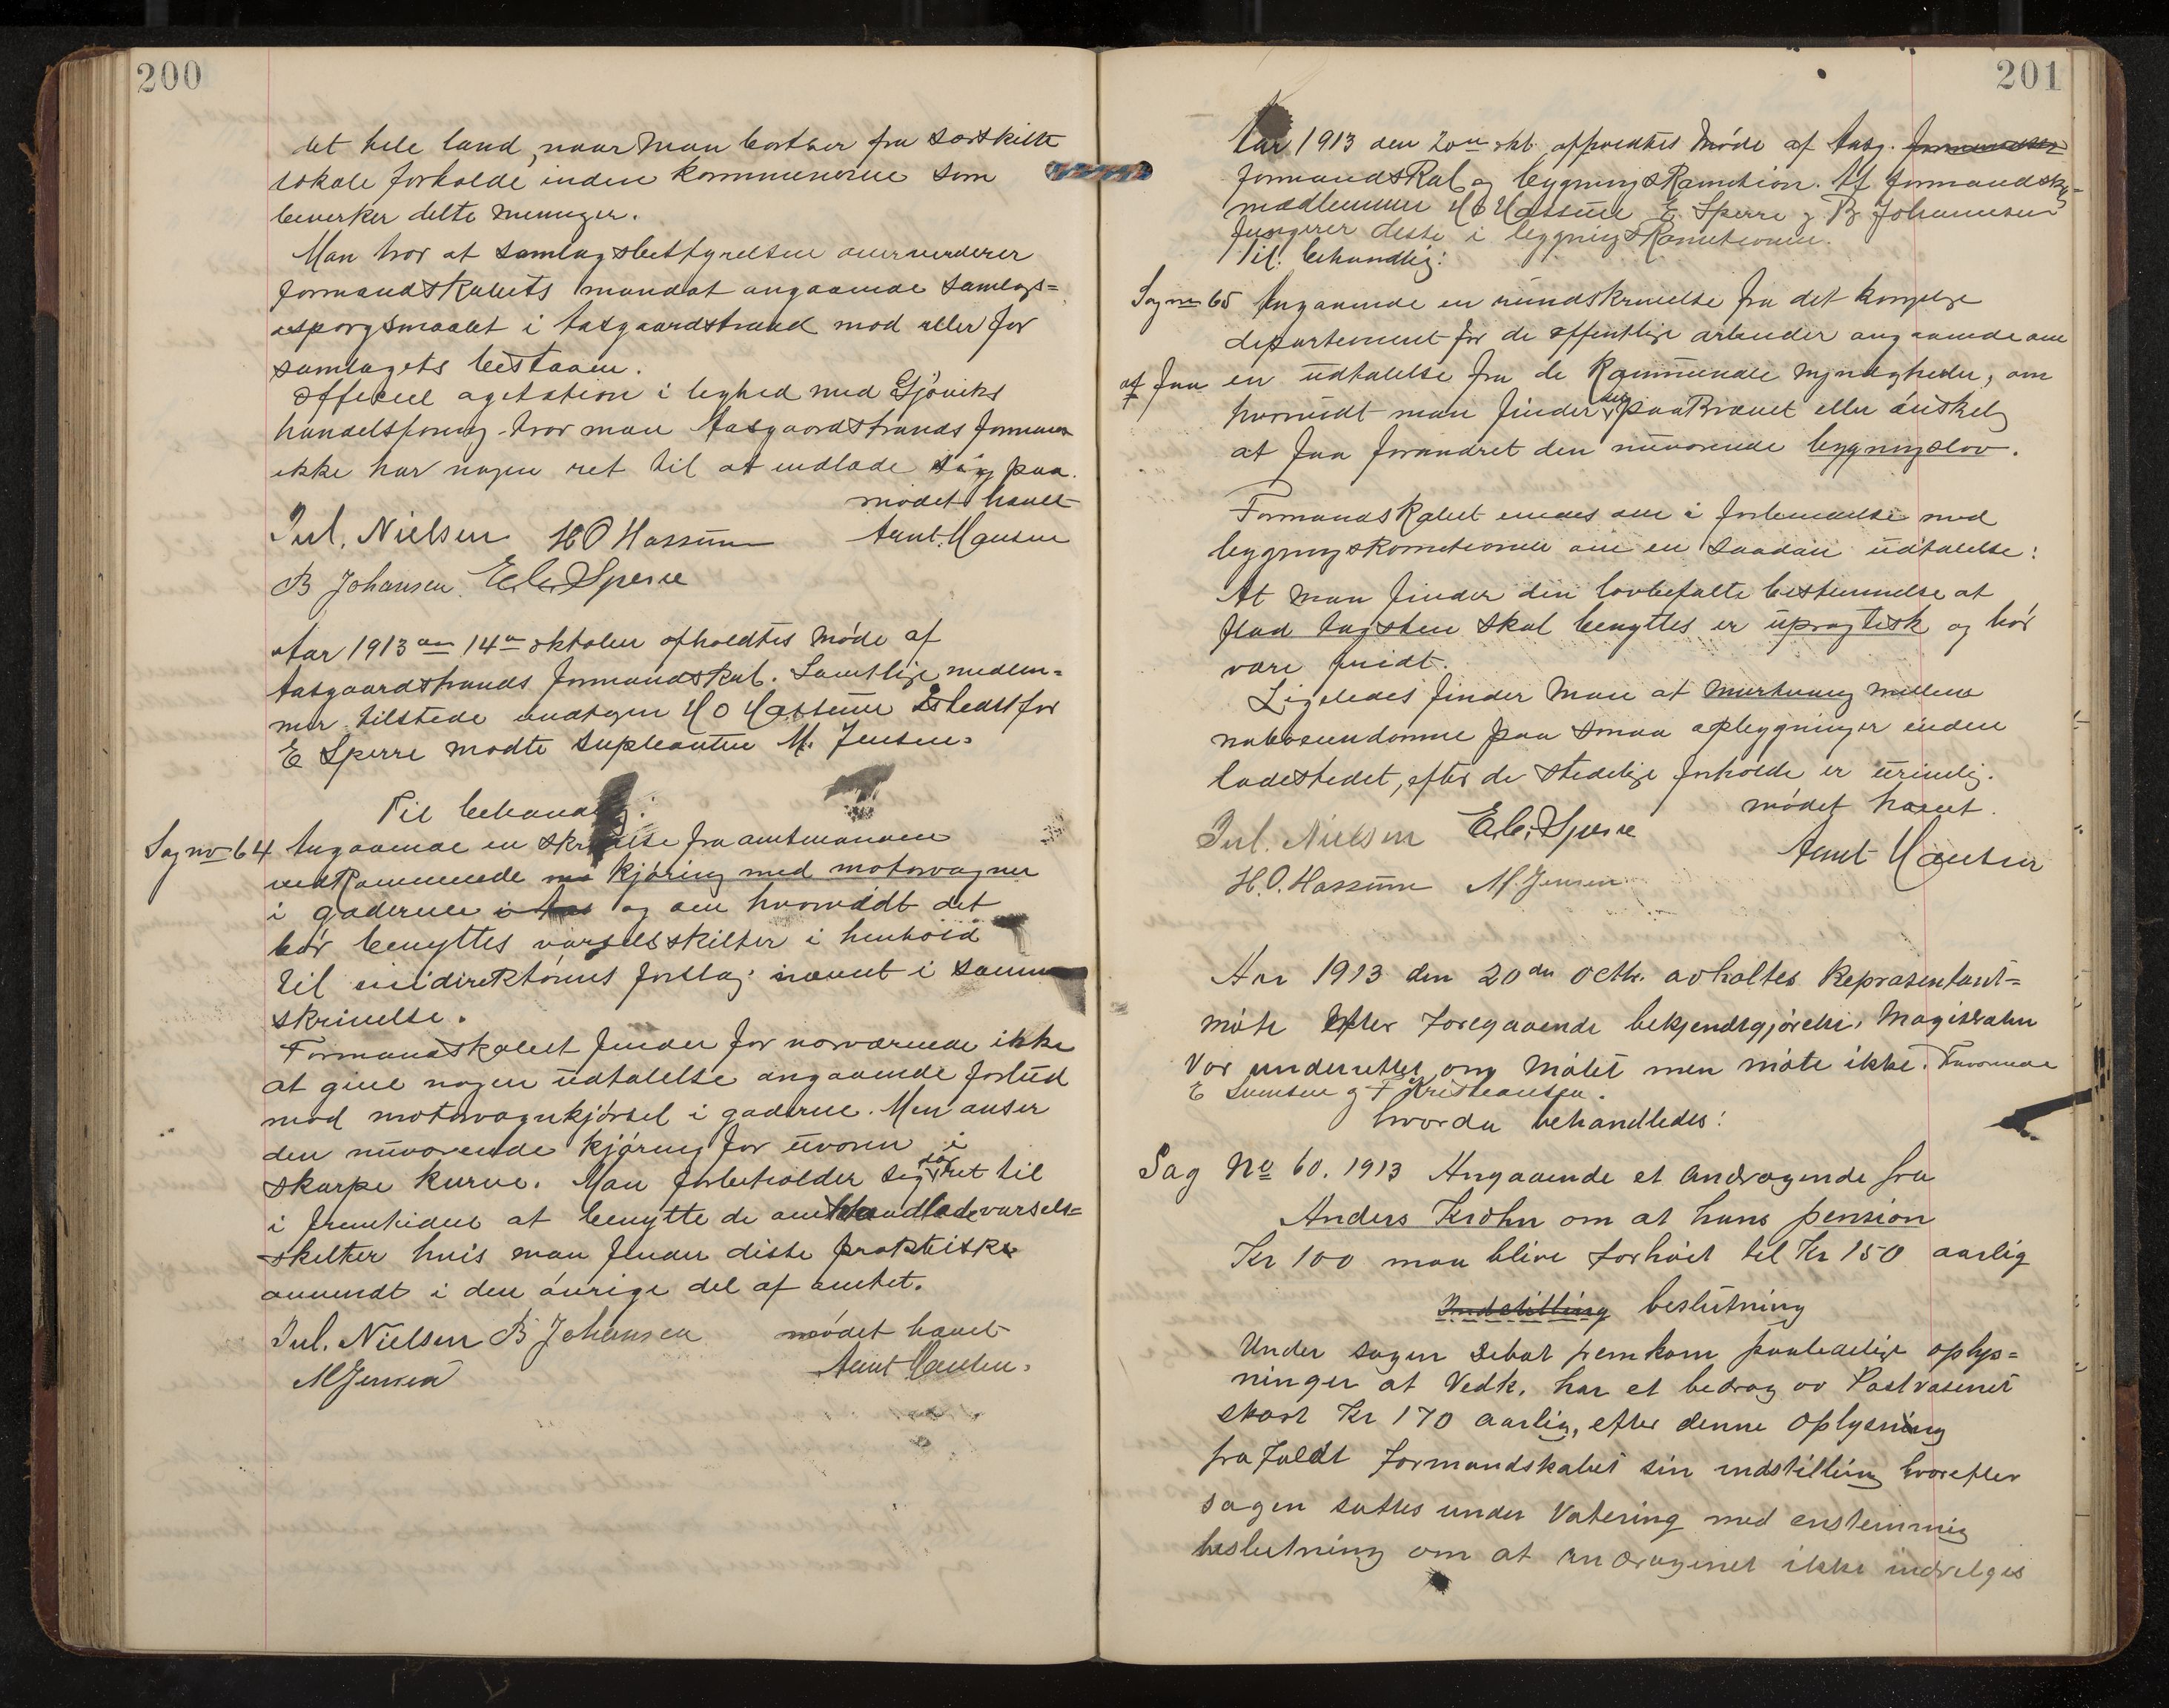 200
det hele land, naar man bortser fra særskilte
lokale forholde inden kommunerne som
bevirker delte meninger.
Man tror at samlagsbestyrelsen overvurderer
formandskabets mandat angaaende samlags=
spørgsmaalet i Aasgaardstrand mod eller for
samlagets bestaaen.
Officiel agetation i lighed med Gjøviks
handelsforeng. tror man Aasgaardstrands formans
ikke har nogen ret til at indlade sig paa.
mødet hævet
Jul. Nielsen HO Hassum Arnt. Hansen
B Johansen. E. Chr. Sperre
Aar 1913 den 14de oktober afholdtes Møde af
Aasgaardstrands formandskab. Samtlige medlem=
mer tilstede undtagen H O Hassum Istedet for
E Sperre mødte supleanten M. Jensen.
Til behandlg:
Sag no 64 Angaaende en skrivelse fra amtmanden
vedkommende kjøring med motorvagner
i gaderne og om hvorvidt det
bør benyttes varselsskilter i henhold
til veidirektørens forslag nævnt i samme
skrivelse.
Formandskabet finder for nærværende ikke
at give nogen udtalelse angaaende forbud
mod motorvognkjørsel i gaderne. Men anser
den nuværende kjøring for uvorn i
skarpe kurve. Man forbeholder sig dog ret til
i fremtiden at benytte de omhandlede varsels=
skilter hvis man finder disse praktiske
anvendt i den øvrige del af amtet.
Jul. Nielsen B Johansen mødet hævet
M Jensen Arnt Hansen.
201
Aar 1913 den 20de okt. afholdtes Møde af Aasg. formandsk
formandskab og bygningskomition. Af formandsk=
medlemmer HO Hassum E. Sperre og B Johannsen
fungerer disse i bygningskomitionen.
Til behandlig:
Sag no 65 Angaaende en rundskrivelse fra det kongelige
departement for de offentlige arbeider angaaende om
at faa en udtalelse fra de kommunale myndigheder, om
hvorvidt man finder det paakrævet eller ønskelig
at faa forandret den nuværende bygningslov.
Formandskabet enedes om i forbindelse med
bygningskomitionen om en saadan udtalelse:
At man finder den lovbefalte bestemmelse at
flad tagsten skal benyttes er upragtisk og bør
være frit.
Ligeledes finder man at murtvang mellem
naboeiendomme paa smaa opbygninger inden
ladestedet, efter de stedelige forholde er urimlig.
mødet hævet.
Jul. Nielsen E. Chr. Sperre Arnt Hansen
H.O. Hassum M. Jensen
Aar 1913 den 20de octbr. avholtes Repræsentant=
møte Efter foregaaende bekjendtgjørelse, Magistraten
Var underrettet om Møtet men møte ikke. Fraværende
E Svensen og F Kristiansen.
hvorda behandledes:
Sag No 60. 1913 Angaaende et Andragende fra
Anders Krohn om at hans pension
Kr 100 maa blive forhøiet til Kr 150 aarlig
Indstilling beslutning
Under sagen debat fremkom paalidelige oplys=
ninger at Vedk. har et bedrag av Postvæsenet
stort Kr 170 aarlig, efter denne oplysning
frafaldt formandskabet sin indstilling hvorefter
sagen sattes under Votering med enstemmig
beslutning om at andragenet ikke indvilges